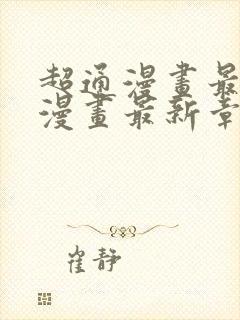 超通漫畫最
漫畫最新章
崔靜